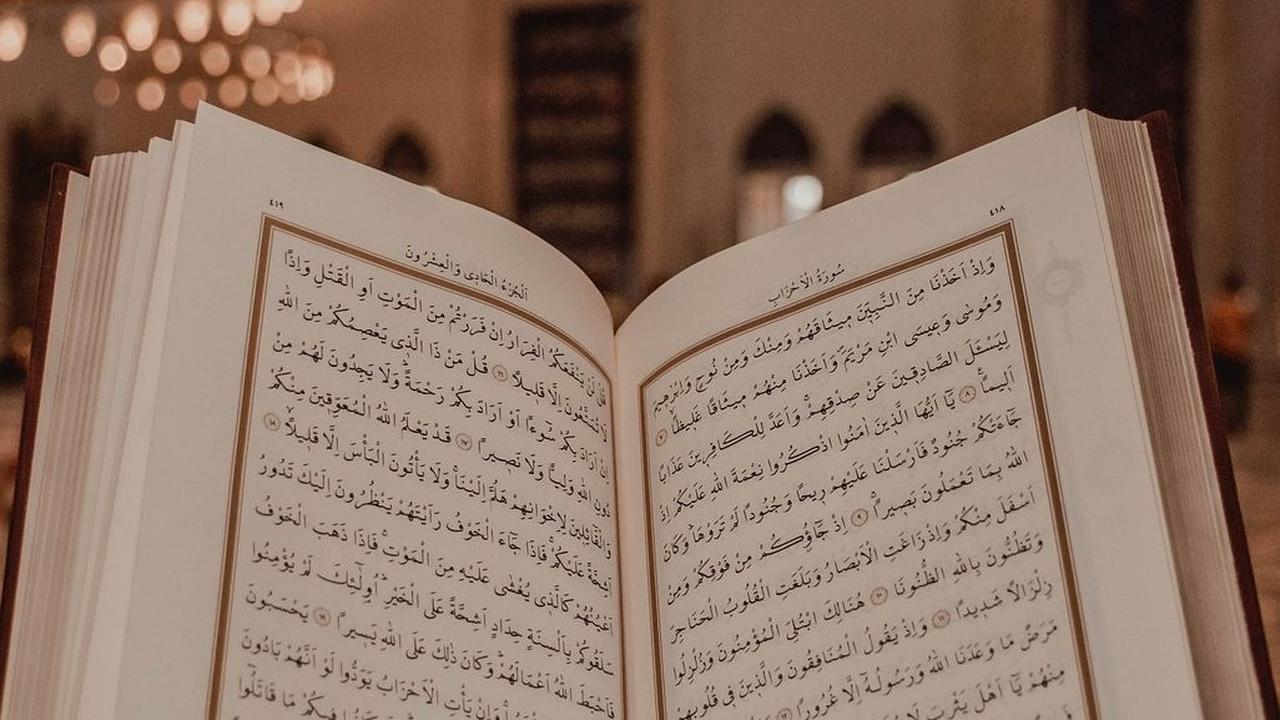 ٤١٨
سُورَةُ الْاَحْزَابِ
وَاِذْ اَخَذْنَا مِنَ النَّبِيّٖنَ مٖيثَاقَهُمْ وَمِنْكَ وَمِنْ نُوحٍ وَاِبْرٰهٖيمَ
وَمُوسٰى وَعٖيسَى ابْنِ مَرْيَمَۖ وَاَخَذْنَا مِنْهُمْ مٖيثَاقًا غَلٖيظًاۙ ﴿٧﴾
لِيَسْـَٔلَ الصَّادِقٖينَ عَنْ صِدْقِهِمْۚ وَاَعَدَّ لِلْكَافِرٖينَ عَذَابًا
اَلٖيمًا۟ ﴿٨﴾ يَٓا اَيُّهَا الَّذٖينَ اٰمَنُوا اذْكُرُوا نِعْمَةَ اللّٰهِ عَلَيْكُمْ اِذْ
جَٓاءَتْكُمْ جُنُودٌ فَاَرْسَلْنَا عَلَيْهِمْ رٖيحًا وَجُنُودًا لَمْ تَرَوْهَاۜ وَكَانَ
اللّٰهُ بِمَا تَعْمَلُونَ بَصٖيرًاۚ ﴿٩﴾ اِذْ جَٓاؤُ۫كُمْ مِنْ فَوْقِكُمْ وَمِنْ
اَسْفَلَ مِنْكُمْ وَاِذْ زَاغَتِ الْاَبْصَارُ وَبَلَغَتِ الْقُلُوبُ الْحَنَاجِرَ
وَتَظُنُّونَ بِاللّٰهِ الظُّنُونَا ﴿١٠﴾ هُنَالِكَ ابْتُلِيَ الْمُؤْمِنُونَ وَزُلْزِلُوا
زِلْزَالًا شَدٖيدًا ﴿١١﴾ وَاِذْ يَقُولُ الْمُنَافِقُونَ وَالَّذٖينَ فٖي قُلُوبِهِمْ
مَرَضٌ مَا وَعَدَنَا اللّٰهُ وَرَسُولُهُٓ اِلَّا غُرُورًا ﴿١٢﴾
مِنْهُمْ يَٓا اَهْلَ يَثْرِبَ لَا
٤١٩
اَلْجُزْءُ الْحَادٖي وَالْعِشْرُونَ
قُلْ لَنْ يَنْفَعَكُمُ الْفِرَارُ اِنْ فَرَرْتُمْ مِنَ الْمَوْتِ اَوِ الْقَتْلِ وَاِذًا
لَا تُمَتَّعُونَ اِلَّا قَلٖيلًا ﴿١٦﴾ قُلْ مَنْ ذَا الَّذٖي يَعْصِمُكُمْ مِنَ اللّٰهِ
اِنْ اَرَادَ بِكُمْ سُٓوءًا اَوْ اَرَادَ بِكُمْ رَحْمَةًۜ وَلَا يَجِدُونَ لَهُمْ مِنْ
دُونِ اللّٰهِ وَلِيًّا وَلَا نَصٖيرًا ﴿١٧﴾ قَدْ يَعْلَمُ اللّٰهُ الْمُعَوِّقٖينَ مِنْكُمْ
وَالْقَٓائِلٖينَ لِاِخْوَانِهِمْ هَلُمَّ اِلَيْنَاۚ وَلَا يَأْتُونَ الْبَأْسَ اِلَّا قَلٖيلًاۙ ﴿١٨﴾
اَشِحَّةً عَلَيْكُمْۚ فَاِذَا جَٓاءَ الْخَوْفُ رَاَيْتَهُمْ يَنْظُرُونَ اِلَيْكَ تَدُورُ
اَعْيُنُهُمْ كَالَّذٖي يُغْشٰى عَلَيْهِ مِنَ الْمَوْتِۚ فَاِذَا ذَهَبَ الْخَوْفُ
سَلَقُوكُمْ بِاَلْسِنَةٍ حِدَادٍ اَشِحَّةً عَلَى الْخَيْرِۜ اُو۬لٰٓئِكَ لَمْ يُؤْمِنُوا
فَاَحْبَطَ اللّٰهُ اَعْمَالَهُمْۜ وَكَانَ ذٰلِكَ عَلَى اللّٰهِ يَسٖيرًا ﴿١٩﴾ يَحْسَبُونَ
وَاِنْ يَأْتِ الْاَحْزَابُ يَوَدُّوا لَوْ اَنَّهُمْ بَادُونَ
فٖيكُمْ مَا قَاتَلُٓوا